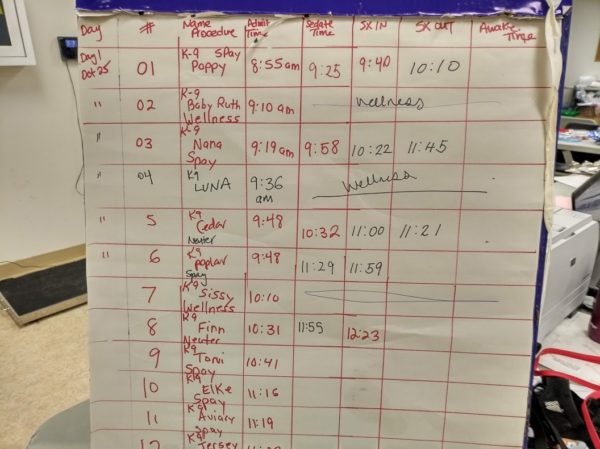 Day # Name Procedure Admit Time Sedate Time SX IN SX OUT Awake Time
Day 1 Oct 25 01 K-9 SPay Poppy 8:55am 9:25 9:40 10:10
" 02 K-9 Baby Ruth Wellness 9:10 am Wellness
" 03 K-9 Nana Spay 9:19am 9:58 10:22 11:45
" 04 K9 LUNA 9:36 am Wellness
" 5 K9 Cedar Neuter 9:48 10:32 11:00 11:21
" 6 K9 poplar Spay 9:48 11:29 11:59
7 K9 Sissy Wellness 10:10
8 K9 Finn Neuter 10:31 11:55 12:23
9 K9 Spay 10:41
10 K9 Elke Spay 11:16
11 K9 Aviary Spay 11:19
12 K9 Jersey